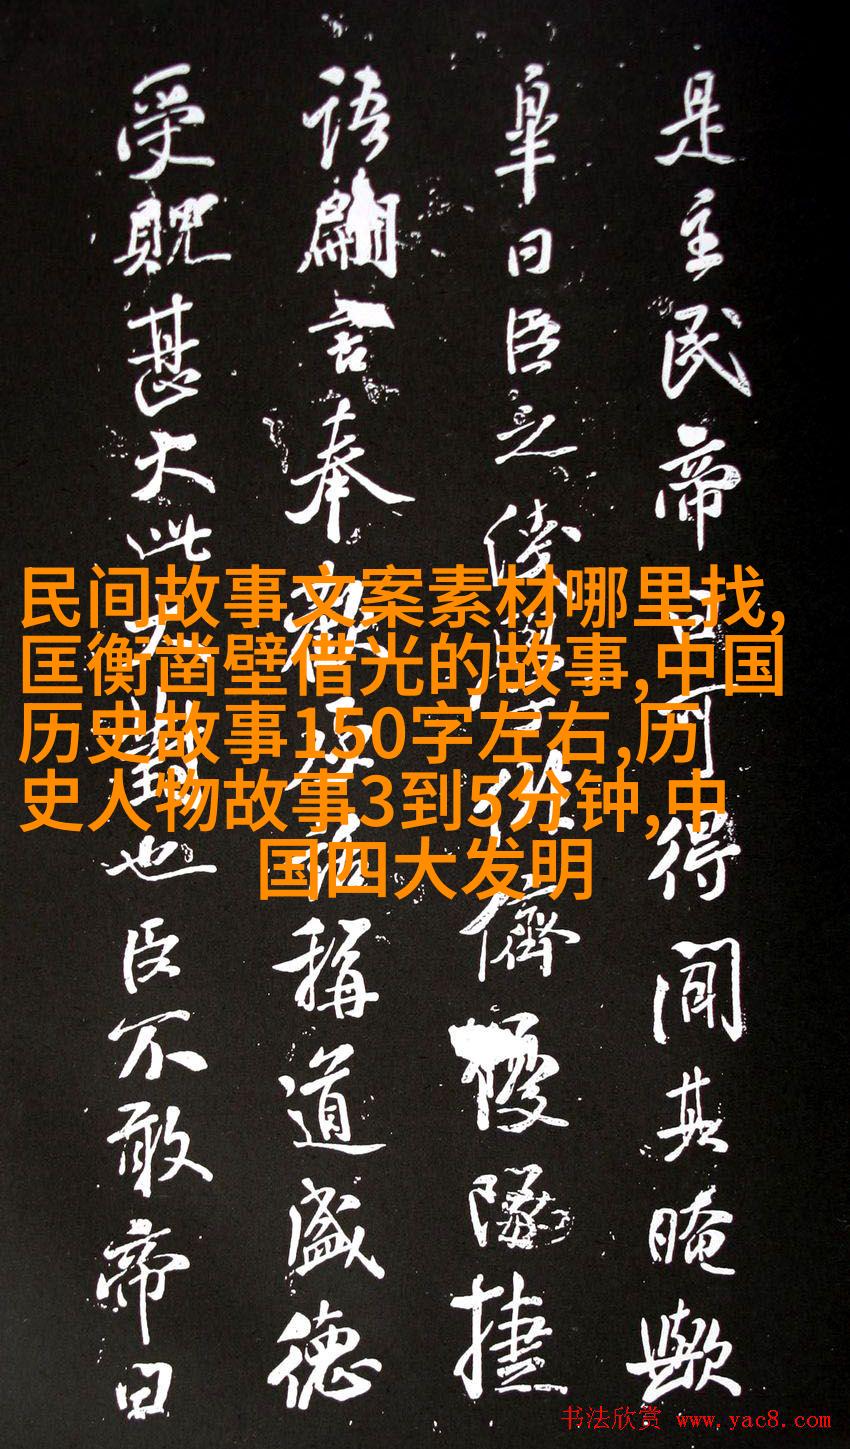 是主民帝曰可得聞其晻歟
皋曰臣之儕優隊捷
语翩言奉稱道盛德
受貺甚大此也臣不敢帝曰
民间故事文案素材哪里找,
匡衡凿壁借光的故事,中国
历史故事150字左右,历
史人物故事3到5分钟,中
国四大发明
书法欣赏 www.yac8.com